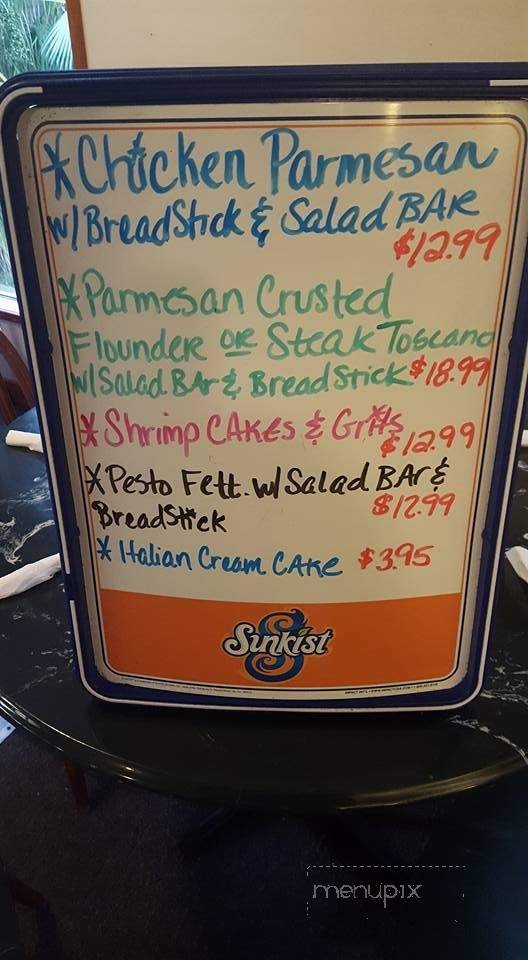 *Chicken Parmesan
w/BreadStick & Salad BAR
$12.99
*Parmesan Crusted
Flounder OR Steak Toscano
w/Salad BAr & BreadStick $18.99
*Shrimp CAKEs & Grits
$12.99
*Pesto Fett. w/ Salad BAr &
BreadStick
$12.99
*Italian Cream CAKE $3.95
Sunkist
S
menupix